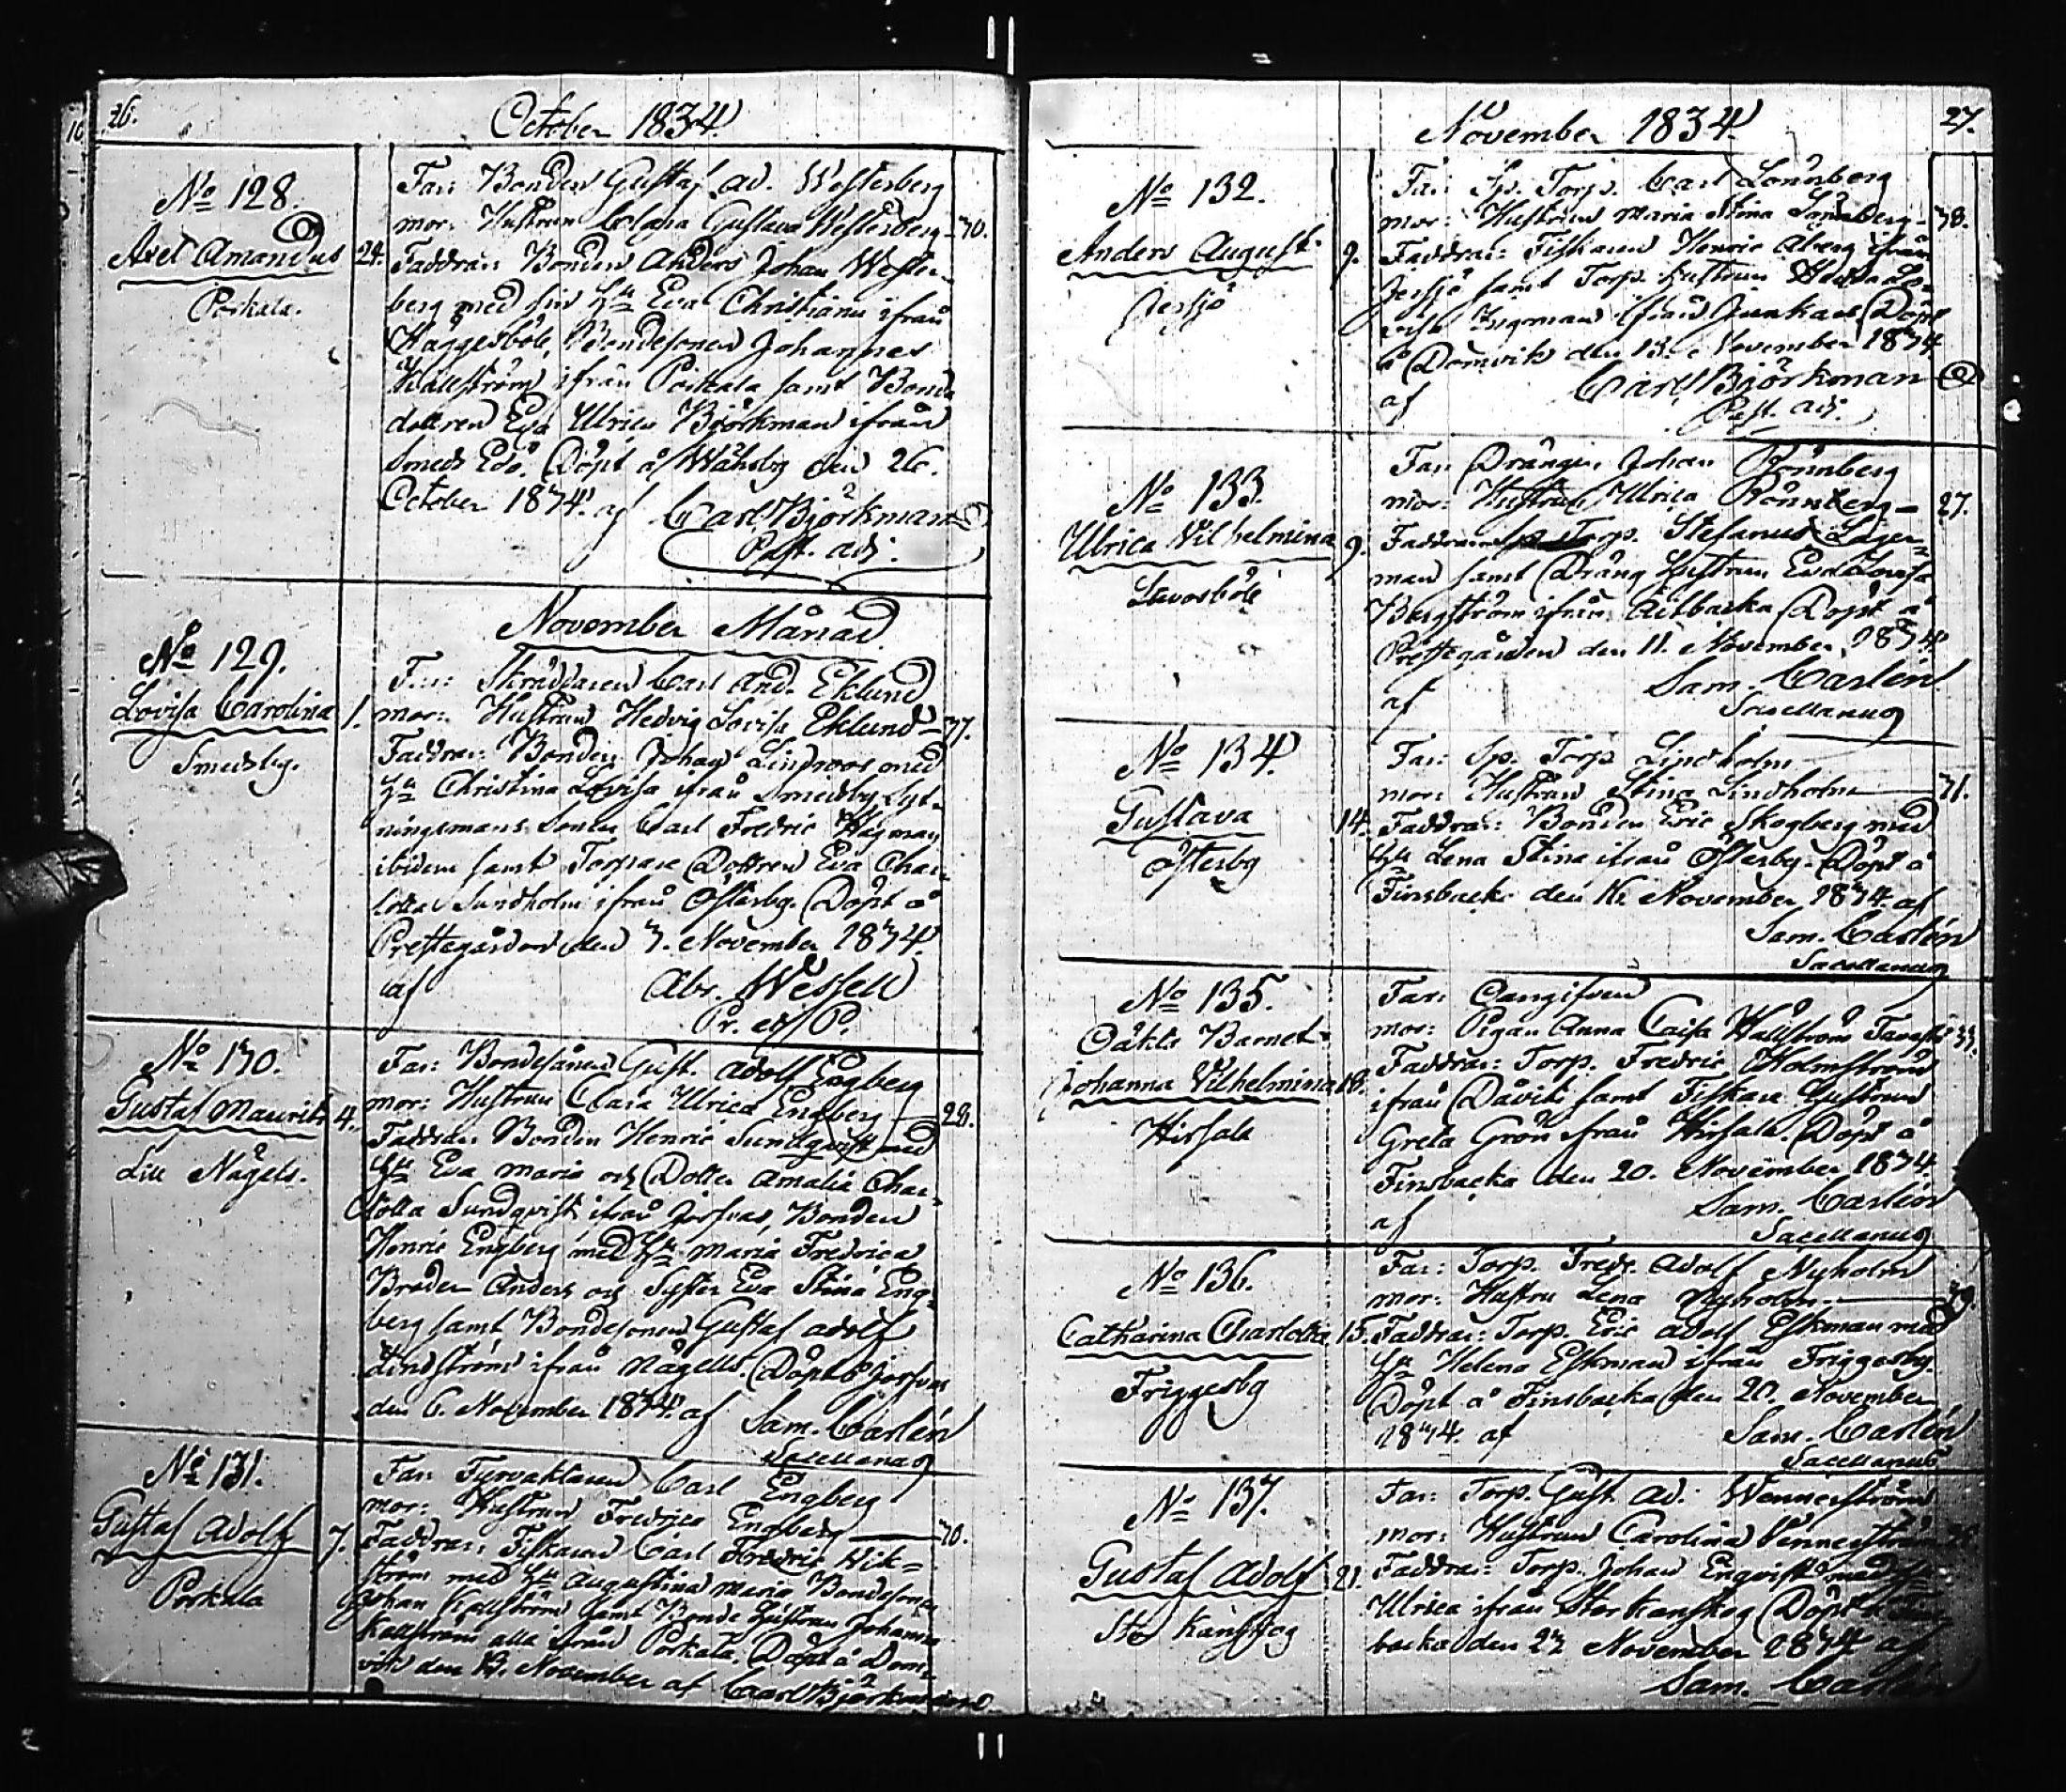 26.
October 1834.
No 128.
Axel Amandus
Porkala.
24.
Far: Bonden Gustaf Ad. Westerberg
mor: Hustrun Gustava Westerberg - 30.
Faddrar: Bonden Anders Johan Wester-
berg med sin Hu Eva Christiana ifrån
Häggesböle, Bondesonen Johannes
Källström ifrån Porkala samt Bonde
dottren Eva Ulrica Björkman ifrån
Smeds Edö. Döpt å Wåhrby den 26.
October 1834. af Carl Björkman
Past. adj.
November Månad
No 129.
Lovisa Carolina
Smedsby.
1.
Far: Skräddaren Carl And. Eklund
mor: Hustrun Hedvig Lovisa Eklund - 37.
Faddrar: Bonden Johan Lindroos med
Hu Christina Lovisa ifrån Smedsby, Lyt-
ningsmans Sonen Carl Fredric Hägman
ibidem samt Torpare Dottren Eva Char-
lotta Sundholm ifrån Österby. Döpt å
Prestegården den 3. November 1834.
af Abr. Wessell
Pr. ex P.
No 130.
Gustaf Maurits
Lill Någels.
4.
Far: Bondesonen Gust. Adolf Engberg
mor: Hustrun Clara Ulrica Engberg - 28.
Faddrar: Bonden Henric Sundqvist med
Hu Eva Maria och Dotter Amalia Char-
lotta Sundqvist ifrån Jorfvas, Bonden
Henric Engberg med Hu Maria Fredrica
Broder Anders och Syster Eva Stina Eng-
berg samt Bondesonen Gustaf Adolf
Lindström ifrån Någells. Döpt å Jorfvas
den 6. November 1834. af Sam. Carlén
Sacellanus
No 131.
Gustaf Adolf
Porkala
7.
Far: Fyrvaktaren Carl Engberg
mor: Hustrun Fredrica Engberg - 30.
Faddrar: Fiskaren Carl Fredric Wik-
ström med Hu Augustina Maria Bondesonen
Johan Källström samt Bonde Hustrun Johanna
Källström alla ifrån Porkala. Döpt å Dom-
vik den 13. November af Carl Björkman
27.
November 1834.
No 132.
Anders August
9.
Far: Sp. Torp. Carl Lönnberg
mor: Hustrun Maria Stina Lönnberg - 38.
Faddrar: Fiskaren Henric Åberg ifrån
samt Torp. Hustrun Lo-
visa ifrån Junkars Döpt
å Domvik den 13. November 1834
af Carl Björkman
Past. adj.
No 133.
Ulrica Vilhelmina
9.
Far: Drängen Johan Rönnberg
mor: Hustrun Ulrica Rönnberg - 27.
Faddrar: Torp. Stefanus Lager-
man samt Dräng Hustrun Eva Lovisa
Bergström ifrån Döpt å
Prestegården den 11. November 1834
af Sam. Carlén
Sacellanus
No 134.
Gustava
Österby
14.
Far: Sp. Torp. Lindholm
mor: Hustrun Stina Lindholm - 31.
Faddrar: Bonden Eric Skogberg med
Hu Lena Stina ifrån Österby. Döpt å
Finsbacka den 16. November 1834. af
Sam. Carlén
Sacellanus
No 135.
Oäkta Barnet
Johanna Vilhelmina
Hirsala
18.
Far: Oangifven
mor: Pigan Anna Caisa Wallström - 33.
Faddrar: Torp. Fredric Holmström
ifrån Dåvits samt Fiskare Hustrun
Greta Grön ifrån Hirsala. Döpt å
Finsbacka den 20. November 1834.
af Sam. Carlén
Sacellanus
No 136.
Catharina Charlotta
Friggesby
15.
Far: Torp. Fredr. Adolf Nyholm
mor: Hustru Lena Nyholm
Faddrar: Torp. Eric Adolf Eskman med
Hu Helena Eskman ifrån Friggesby.
Döpt å Finsbacka den 20. November
1834. af Sam. Carlén
Sacellanus
No 137.
Gustaf Adolf
Stor Kanskog
21.
Far: Torp. Gust. Ad. Wennerström
mor: Hustrun Carolina Vennerström
Faddrar: Torp. Johan Engvist med Hu
Ulrica ifrån Stor Kanskog Döpt å Fins-
backa den 27 November 1834 af
Sam. Carlén